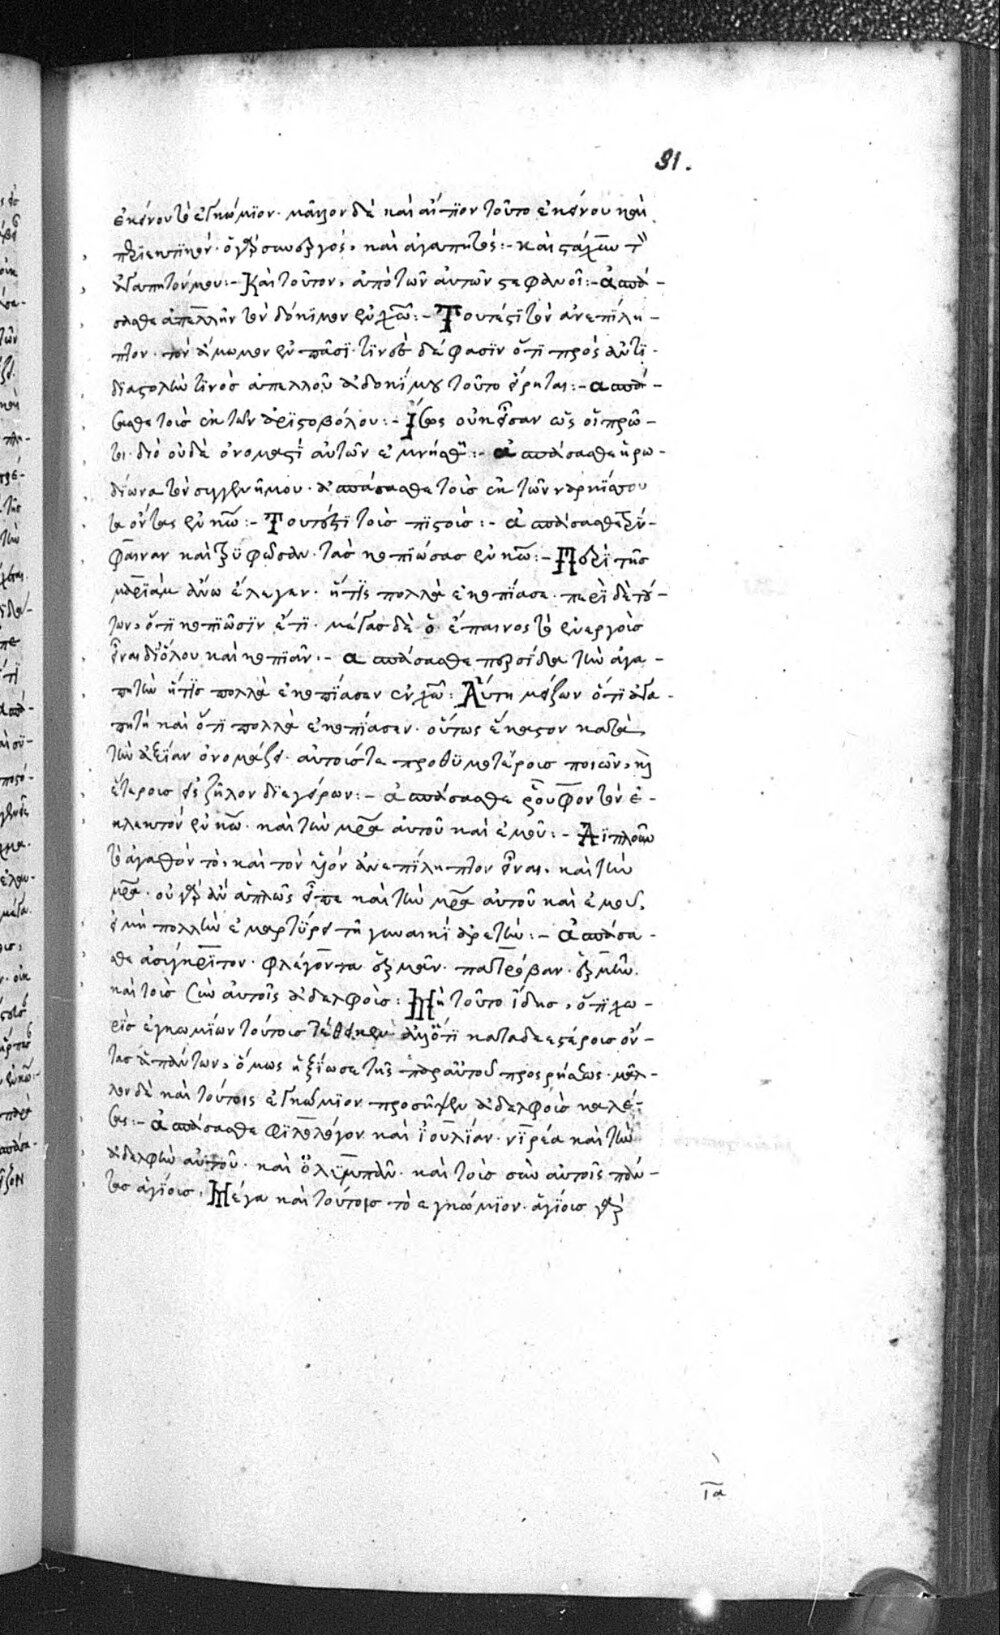 81.
ἐκείνου τὸ ἐγκώμιον· μᾶλλον δὲ καὶ αἴτιον τοῦτο ἐκείνου καὶ
περιεκτικόν· ὁ γὰρ συνεργός, καὶ ἀγαπητός:- καὶ στάχυν τ
ἀγαπητόν μου:- Καὶ τοῦτον, ἀπὸ τῶν αὐτῶν στεφανοῖ:- ἀσπά-
σασθε ἀπελλὴν τὸν δόκιμον ἐν χω:- Τουτέστι τὸν ἀνεπίλη-
πτον· τὸν ἄμωμον ἐν πᾶσι· τινὲς δέ φασιν ὅτι πρὸς ἀντι-
διαστολὴν τινὸς ἀπελλοῦ ἀδοκίμου τοῦτο εἴρηται:- ἀσπά-
σασθε τοὺς ἐκ τῶν ἀριστοβόλου:- Ἴσως οὐκ ἦσαν ὡς οἱ πρῶ-
τοι· διὸ οὐδὲ ὀνομαστὶ αὐτῶν ἐμνήσθη:- ἀσπάσασθε ἡρω-
δίωνα τὸν συγγενῆ μου· ἀσπάσασθε τοὺς ἐκ τῶν ναρκίσσου
τοὺς ὄντας ἐν κω:- Τουτέστι τοὺς πιστοὺς:- ἀσπάσασθε τρύ-
φαιναν καὶ τρυφῶσαν· τὰς κοπιώσας ἐν κω:- Περὶ τῆς
μαριὰμ ἄνω ἔλεγεν· ἥτις πολλὰ ἐκοπίασε· περὶ δὲ τού-
των, ὅτι κοπιῶσιν ἔτι· μέγας δὲ ὁ ἔπαινος τὸ ἐνεργοὺς
εἶναι διόλου καὶ κοπιᾶν:- ἀσπάσασθε περσίδα τὴν ἀγα-
πητὴν ἥτις πολλὰ ἐκοπίασεν ἐν χω: Αὕτη μείζων ὅτι ἀγα-
πητὴ καὶ ὅτι πολλὰ ἐκοπίασεν· οὕτως ἕκαστον κατὰ
τὴν ἀξίαν ὀνομάζει· αὐτούς τε προθυμοτέρους ποιῶν, καὶ
ἑτέρους εἰς ζῆλον διεγείρων:- ἀσπάσασθε ῥοῦφον τὸν ἐ-
κλεκτὸν ἐν κω· καὶ τὴν μρα αὐτοῦ καὶ ἐμοῦ:- Διπλοῦν
τὸ ἀγαθὸν τὸ, καὶ τὸν υἱὸν ἀνεπίληπτον εἶναι, καὶ τὴν
μρα· οὐ γὰρ ἂν ἁπλῶς εἶπε καὶ τὴν μρα αὐτοῦ καὶ ἐμοῦ,
εἰ μὴ πολλὴν ἐμαρτύρει τῇ γυναικὶ ἀρετήν:- ἀσπάσα-
σθε ἀσύγκριτον· φλέγοντα ἑρμᾶν· πατρόβαν· ἑρμῆν·
καὶ τοὺς σὺν αὐτοῖς ἀδελφούς: Μὴ τοῦτο ἴδῃς, ὅτι χω-
ρὶς ἐγκωμίων τούτους τέθεικεν ἀλλ' ὅτι καταδεεστέρους ὄν-
τας ἁπάντων, ὅμως ἠξίωσε τῆς παρ' αὐτοῦ προσρήσεως· μᾶλ-
λον δὲ καὶ τούτοις ἐγκώμιον προσῆψεν ἀδελφοὺς καλέ-
σας:- ἀσπάσασθε φιλόλογον καὶ ἰουλίαν· νιρέα καὶ τὴν
ἀδελφὴν αὐτοῦ· καὶ ὀλυμπᾶν· καὶ τοὺς σὺν αὐτοῖς πάν-
τας ἁγίους· Μέγα καὶ τούτοις τὸ ἐγκώμιον· ἁγίους γὰρ
ια